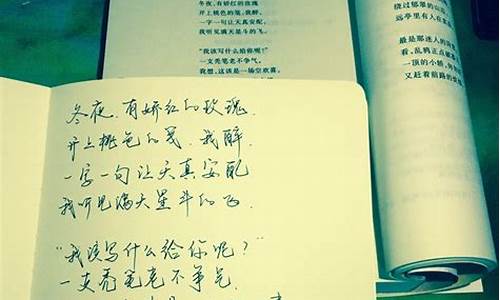 冬夜，有娇红的玫瑰
开上桃色的笺，我醉，
一字一句让天真安配，
我听见满天星斗的飞。
"我该写什么给你呢？"
一支秃笔老不争气，
我想，这该是一场空欢喜。
绕过郁翠的山
远亭里有人在
最是那迷人的
看，乱鸦正点破
一顶的小轿，
又赶着前路的
冬夜，有娇红的玫瑰，
开上桃色的笺，我醉，
一字一句让天真安配
我听见满天星斗的飞，
"我该写什么给你呢？"
一支秃笔老不争气，